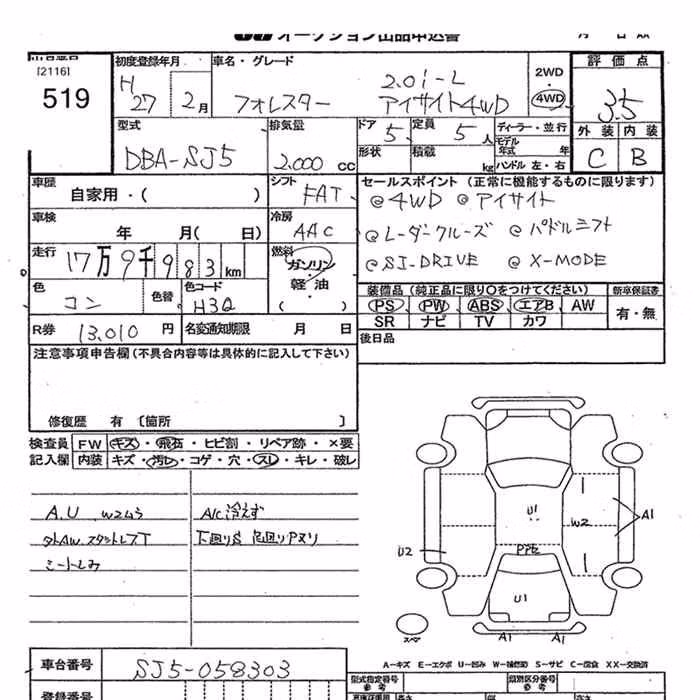 オークション出品申込書
[2116]
519
初度登録年月
H27 2月
車名・グレード
2.0i-L
フォレスター アイサイト4WD
2WD
4WD
評価点
3.5
外装 内装
C B
型式
DBA-SJ5
排気量
2.000 cc
ドア 5
定員 5人
形状 積載 kg
ディーラー・並行
モデル年式 年
ハンドル 左・右
車歴
自家用・( )
シフト
FAT
車検
年 月( 日)
冷房
AAC
走行
17万9千983km
燃料
ガソリン・軽油
( )
色
コン
色替
色コード
H3Q
R券 13,010 円
名変通知期限 月 日
セールスポイント (正常に機能するものに限ります)
@4WD @アイサイト
@レーダークルーズ @パドルシフト
@SI-DRIVE @X-MODE
装備品(純正品に限り○をつけてください)
PS PW ABS エアB AW
SR ナビ TV カワ
新車保証書
有・無
後日品
注意事項申告欄(不具合内容等は具体的に記入して下さい)
修復歴 有 〔箇所 〕
検査員 FW キズ・飛石・ヒビ割・リペア跡・×要
記入欄 内装 キズ・汚レ・コゲ・穴・スレ・キレ・破レ
A.U W2ムラ
外AW.スタットレスT
シートしみ
A/C冷えず
下廻りS 足廻りPヌリ
U1
W2
A1
U2
U1
スペア
A1 A1
A-キズ E-エクボ U-凹み W-補修跡 S-サビ C-腐食 XX-交換済
車台番号 SJ5-058303
型式指定番号 参考
類別区分番号 参考
登録番号
長さ
高さ